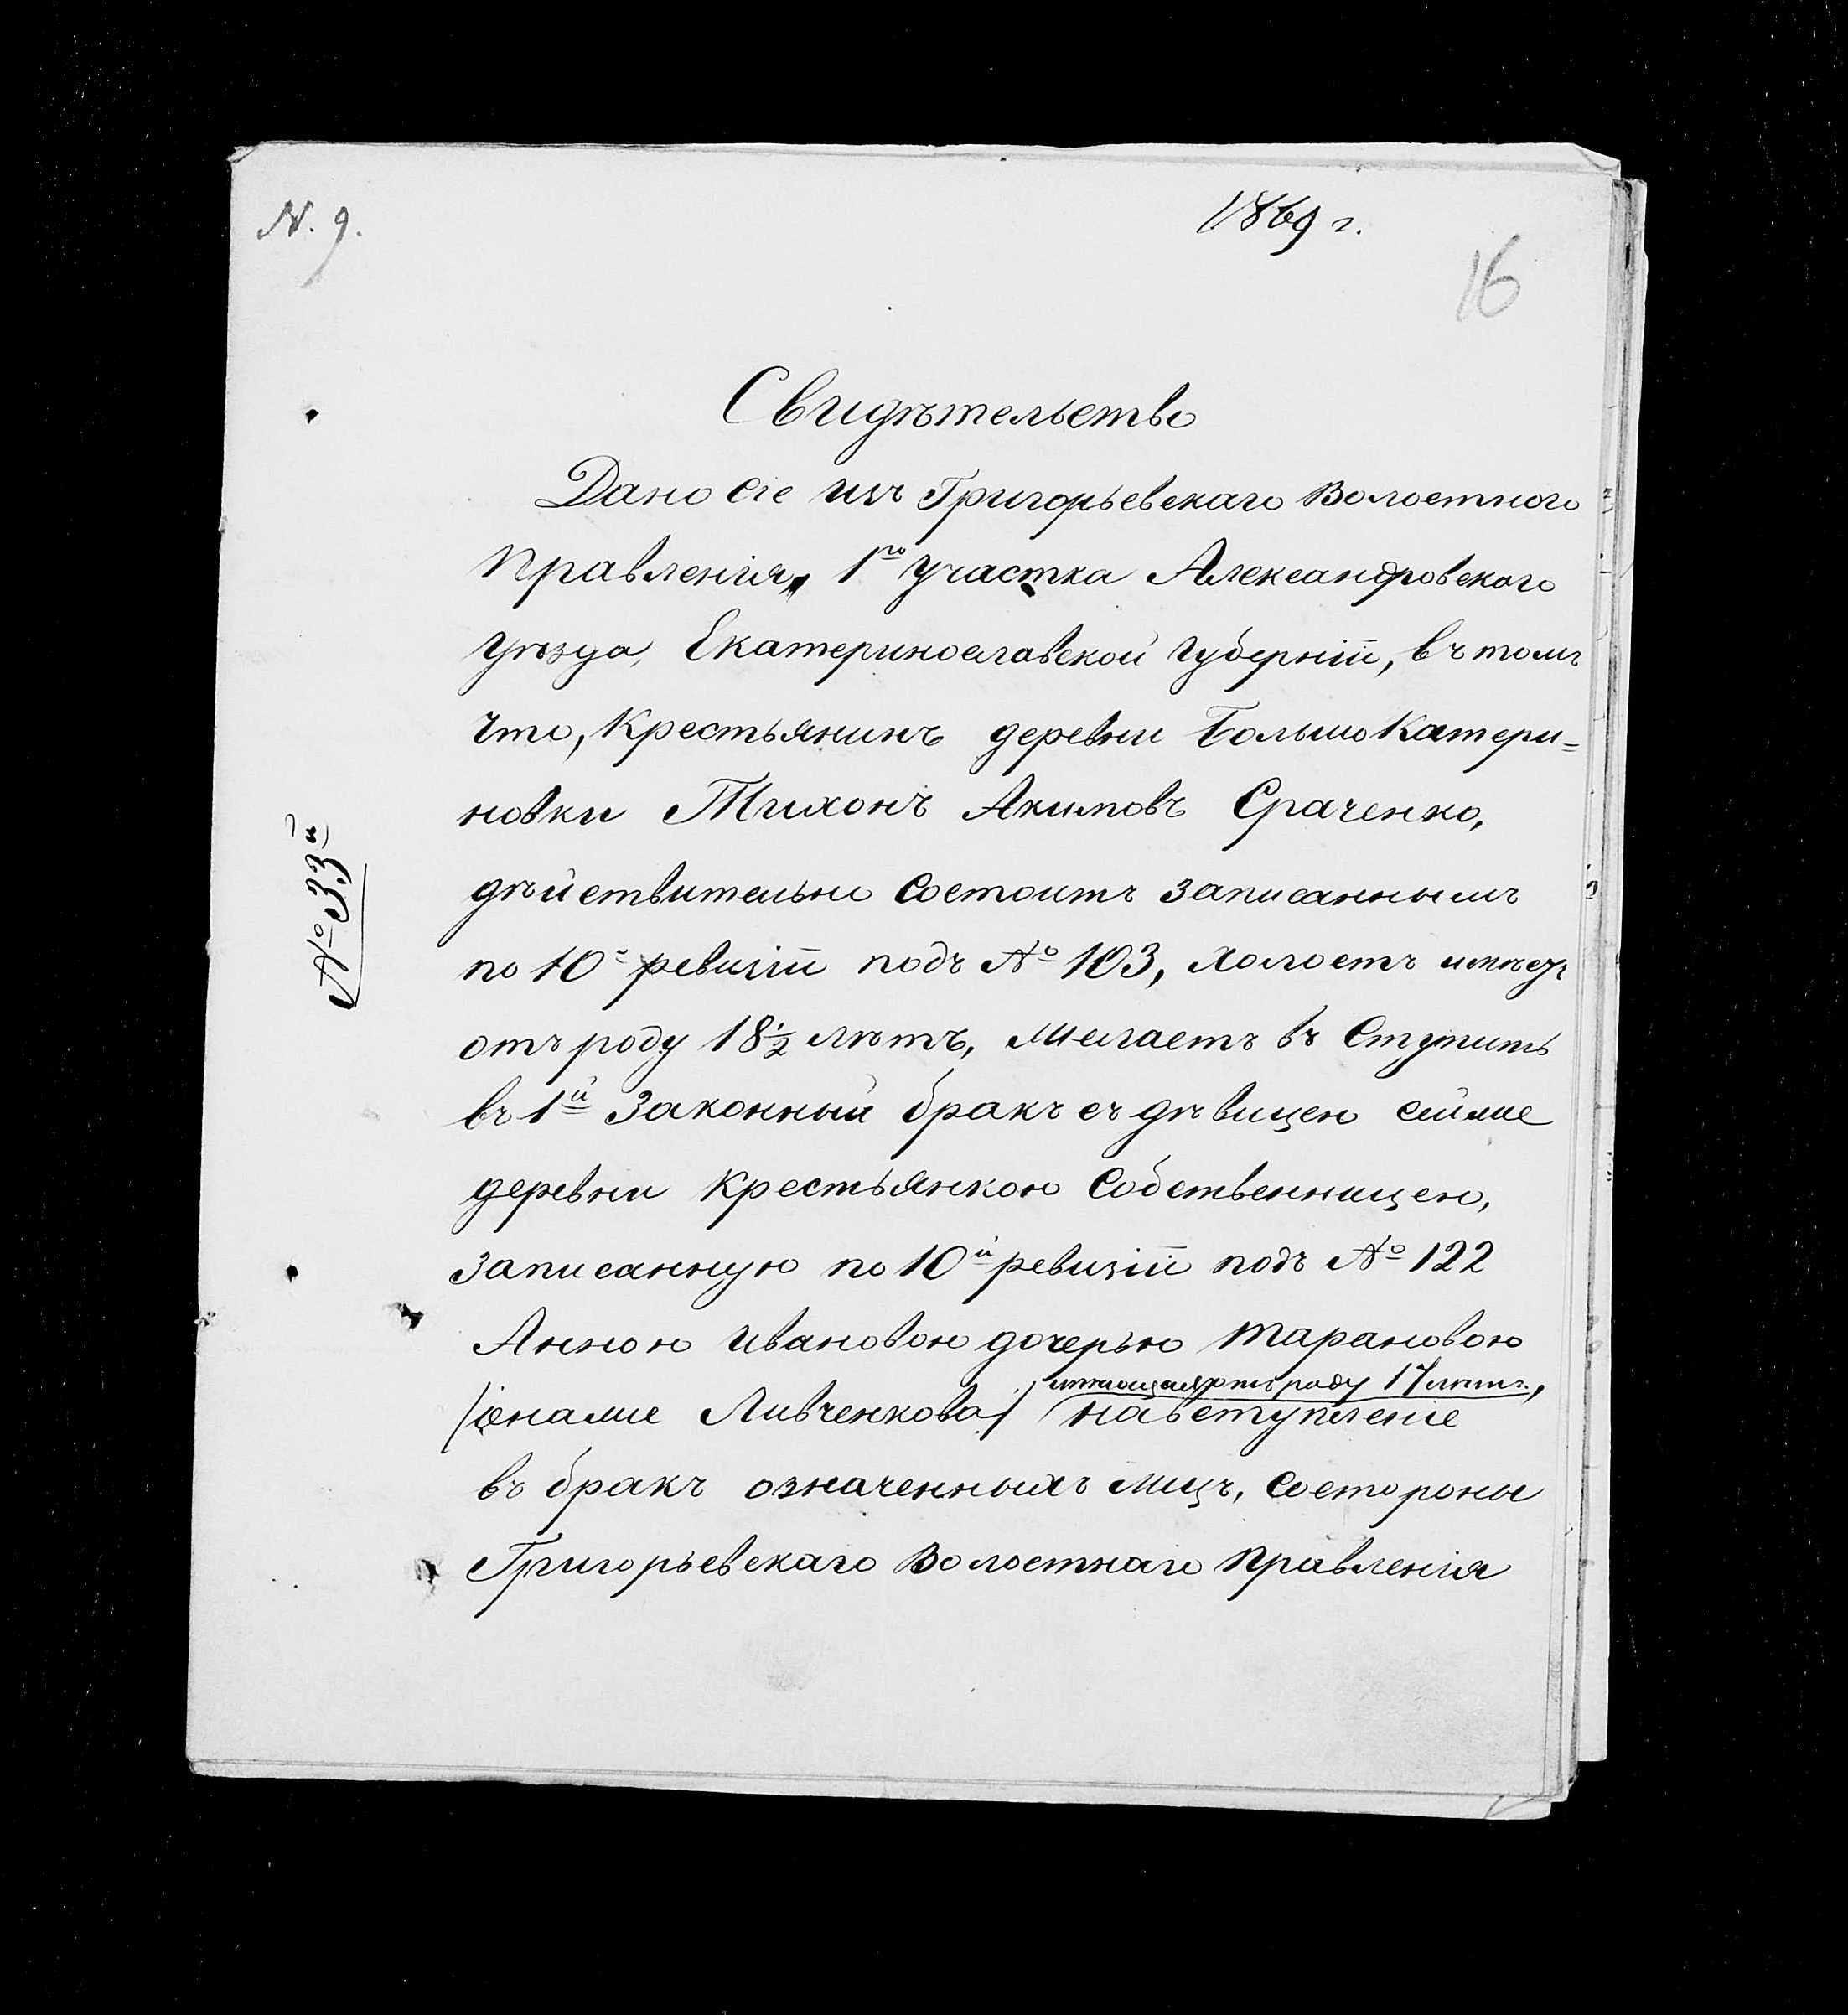 N. 9.
1869 г.
16
Свидѣтельство
Дано сіе изъ Григорьевскаго Волостного
Правленія, 1го участка Александровскаго
уѣзда, Екатеринославской губерніи, въ томъ
что, Крестьянинъ деревни Большо Катери=
новки Тихонъ Акимовъ Срач​енко,
дѣйствительно состоитъ записаннымъ
по 10й ревизіи подъ № 103, холостъ имѣетъ
отъ роду 18½ лѣтъ, желаетъ въ Ступить
въ 1й Законный бракъ съ дѣвицею сейже
деревни Крестьянкою Собственницею,
записанную по 10й ревизіи подъ № 122
Анною Ивановою дочерью Тарановою
имѣющая отъ роду 17 лѣтъ,
/онаже Ливченкова/ на вступленіе
въ бракъ означенныхъ лицъ, состороны
Григорьевскаго Волостнаго Правленія
№ 33й